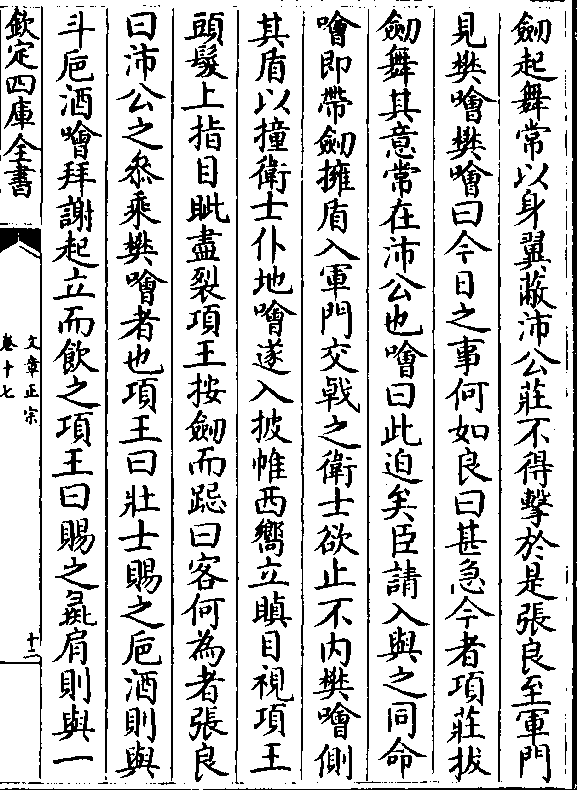 劒起舞常以身翼蔽沛公莊不得擊於是張良至軍門
見樊噲樊噲曰今日之事何如良曰甚急今者項莊拔
劒舞其意常在沛公也噲曰此迫矣臣請入與之同命
噲即帶劒擁盾入軍門交㦸之衛士欲止不内樊噲側
其盾以撞衛士仆地噲遂入披帷西嚮立瞋目視項王
頭髮上指目眦盡裂項王按劒而跽曰客何為者張良
曰沛公之叅乘樊噲者也項王曰壯士賜之巵酒則與
斗巵酒噲拜謝起立而飲之項王曰賜之彘肩則與一
欽定四庫全書
文章正宗
卷十七
十二